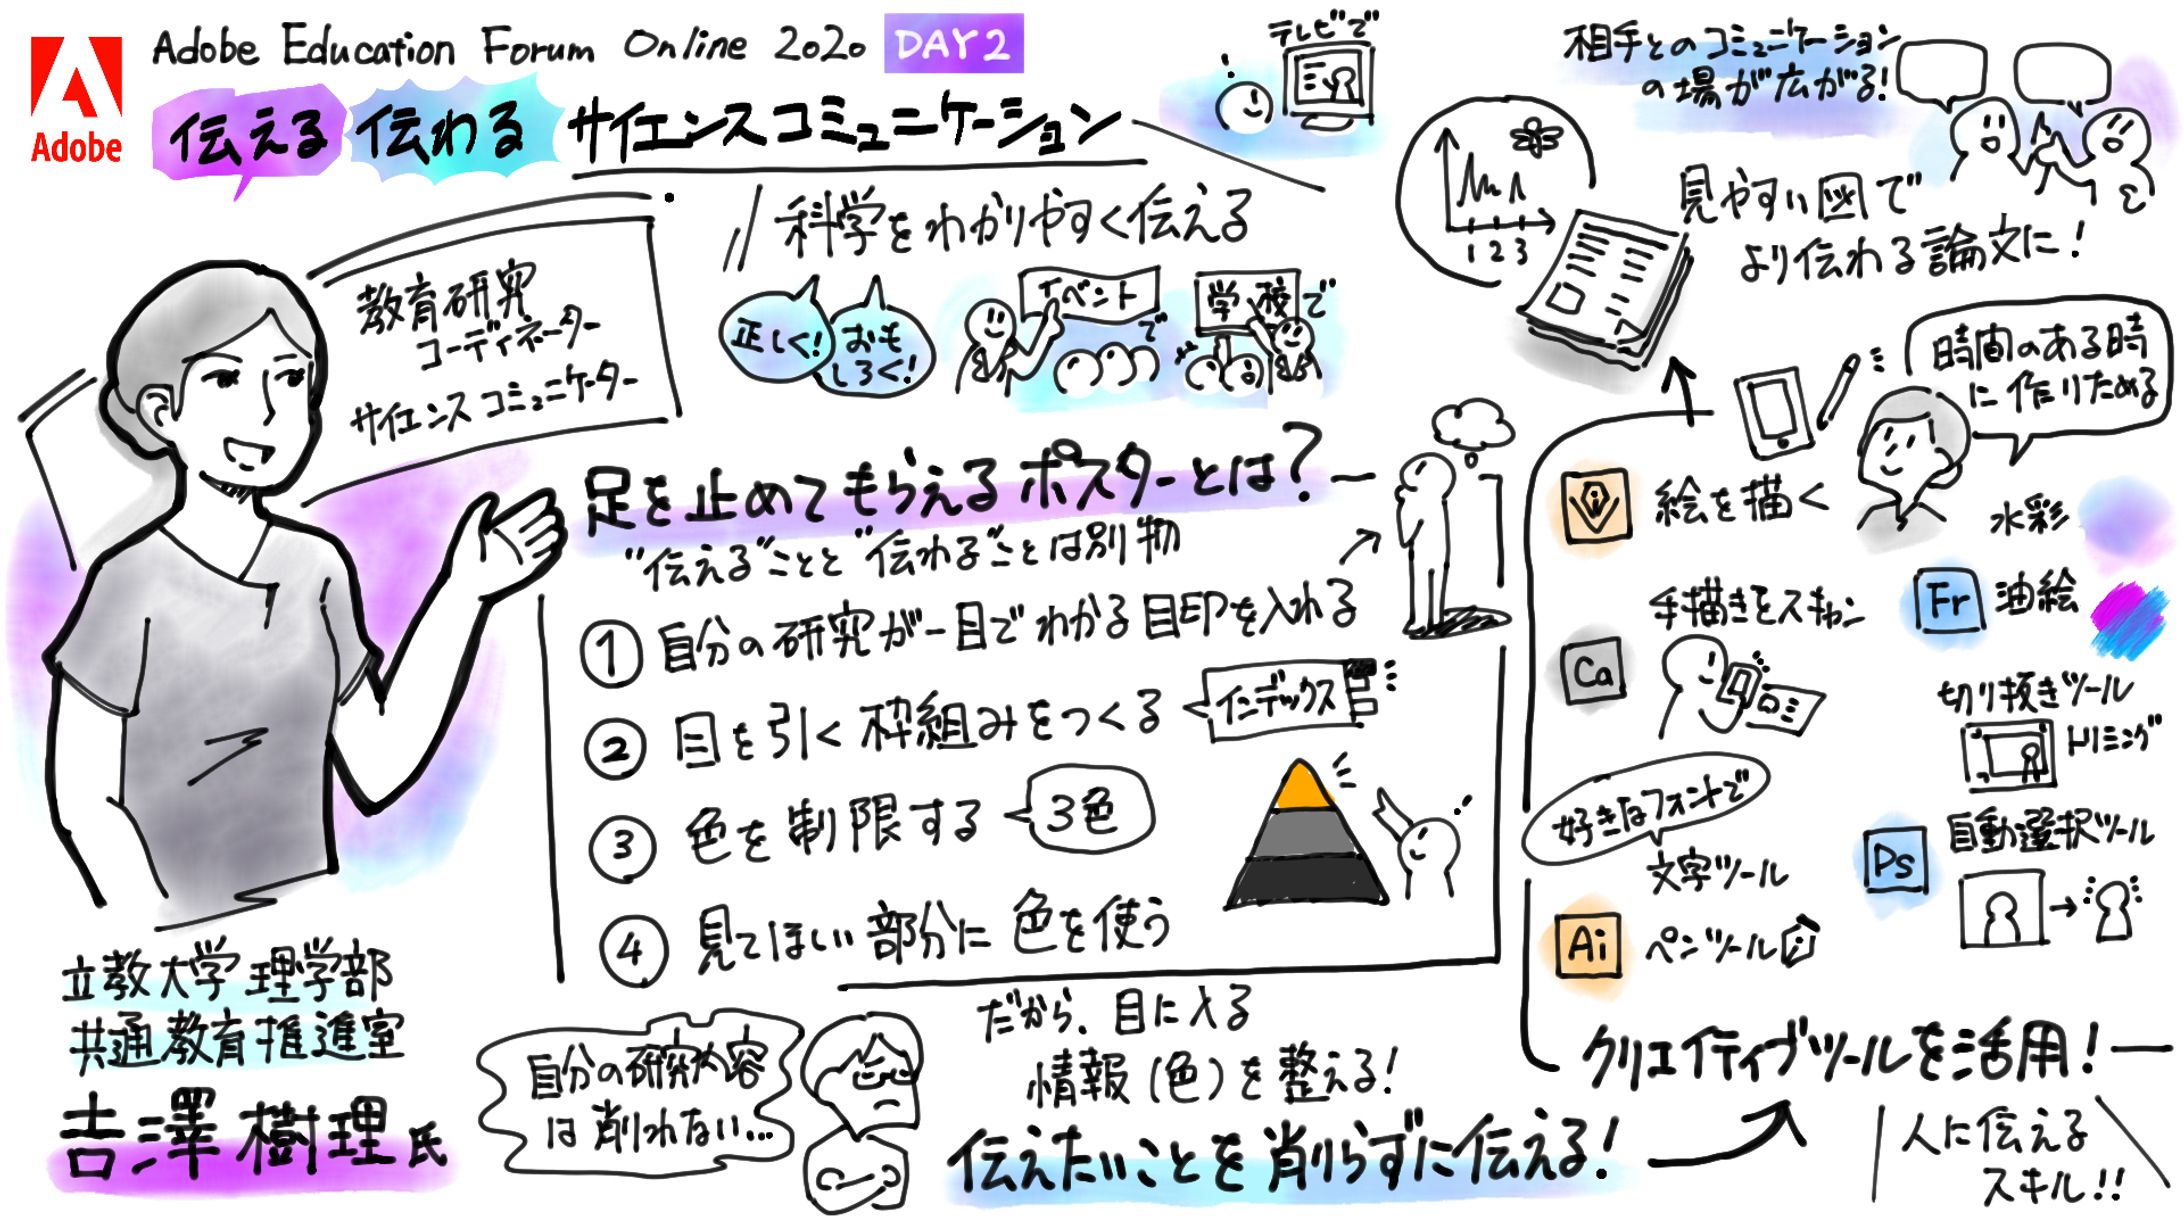 Adobe
Adobe Education Forum Online 2020 DAY2
伝える 伝わる サイエンスコミュニケーション
教育研究
コーディネーター
サイエンス コミュニケーター
立教大学 理学部
共通教育推進室
吉澤 樹理 氏
科学をわかりやすく伝える
正しく!
おも
しろく!
イベント
で
学校で
テレビで
足を止めてもらえるポスターとは?
"伝える"ことと"伝わる"ことは別物
① 自分の研究が一目でわかる目印を入れる
② 目を引く枠組みをつくる
インデックス
③ 色を制限する
3色
④ 見てほしい部分に色を使う
自分の研究内容
は削れない…
だから、目に入る
情報(色)を整える!
伝えたいことを削らずに伝える!
クリエイティブツールを活用!
人に伝える
スキル!!
絵を描く
時間のある時
に作りためる
水彩
Fr 油絵
手描きをスキャン
Ca
切り抜きツール
トリミング
Ps
自動選択ツール
好きなフォントで
文字ツール
Ai
ペンツール
1 2 3
見やすい図で
より伝わる論文に!
相手とのコミュニケーション
の場が広がる!